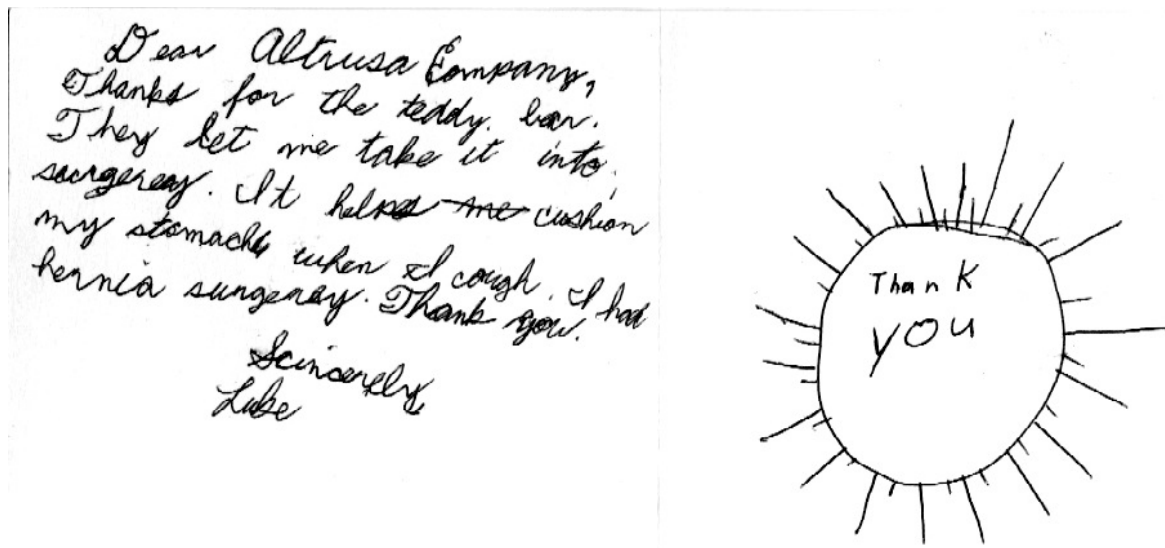 Dear Altrusa Company,
Thanks for the teddy. bear.
They let me take it into
surgerey. It helps me cushion
my stomach when I cough. I had
hernia surgerey. Thank you.
Scincerely,
Luke
Thank
you